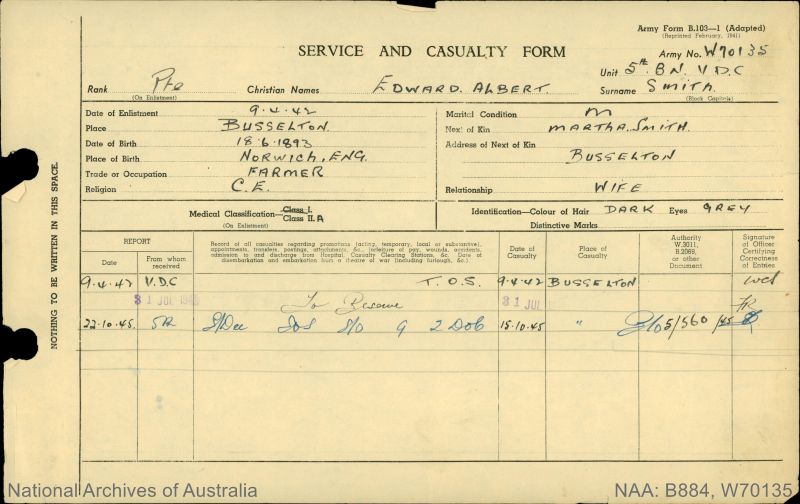 Army Form B.103—1 (Adapted)
(Reprinted February, 1941)
SERVICE AND CASUALTY FORM
Army No. W70135
Unit 5th BN. V.D.C
Rank Pte Christian Names EDWARD ALBERT. Surname SMITH.
(On Enlistment) (Block Capitals)
Date of Enlistment 9.4.42
Place BUSSELTON.
Date of Birth 18.6.1893
Place of Birth NORWICH, ENG.
Trade or Occupation FARMER
Religion C.E.
Marital Condition M
Next of Kin MARTHA SMITH.
Address of Next of Kin
BUSSELTON
Relationship WIFE
Medical Classification—Class I.
Class II.A
(On Enlistment)
Identification—Colour of Hair DARK Eyes GREY
Distinctive Marks
NOTHING TO BE WRITTEN IN THIS SPACE.
REPORT
Date
From whom received
Record of all casualties regarding promotions (acting, temporary, local or substantive), appointments, transfers, postings, attachments, &c., forfeiture of pay, wounds, accidents, admission to and discharge from Hospital, Casualty Clearing Stations, &c. Date of disembarkation and embarkation from a theatre of war (including furlough, &c.)
Date of Casualty
Place of Casualty
Authority W.3011, B.2069, or other Document
Signature of Officer Certifying Correctness of Entries
9.4.42 V.D.C T.O.S. 9.4.42 BUSSELTON
31 JUL 1943 To Reserve 31 JUL
22.10.45 2 15.10.45 " 5/560/45
National Archives of Australia
NAA: B884, W70135